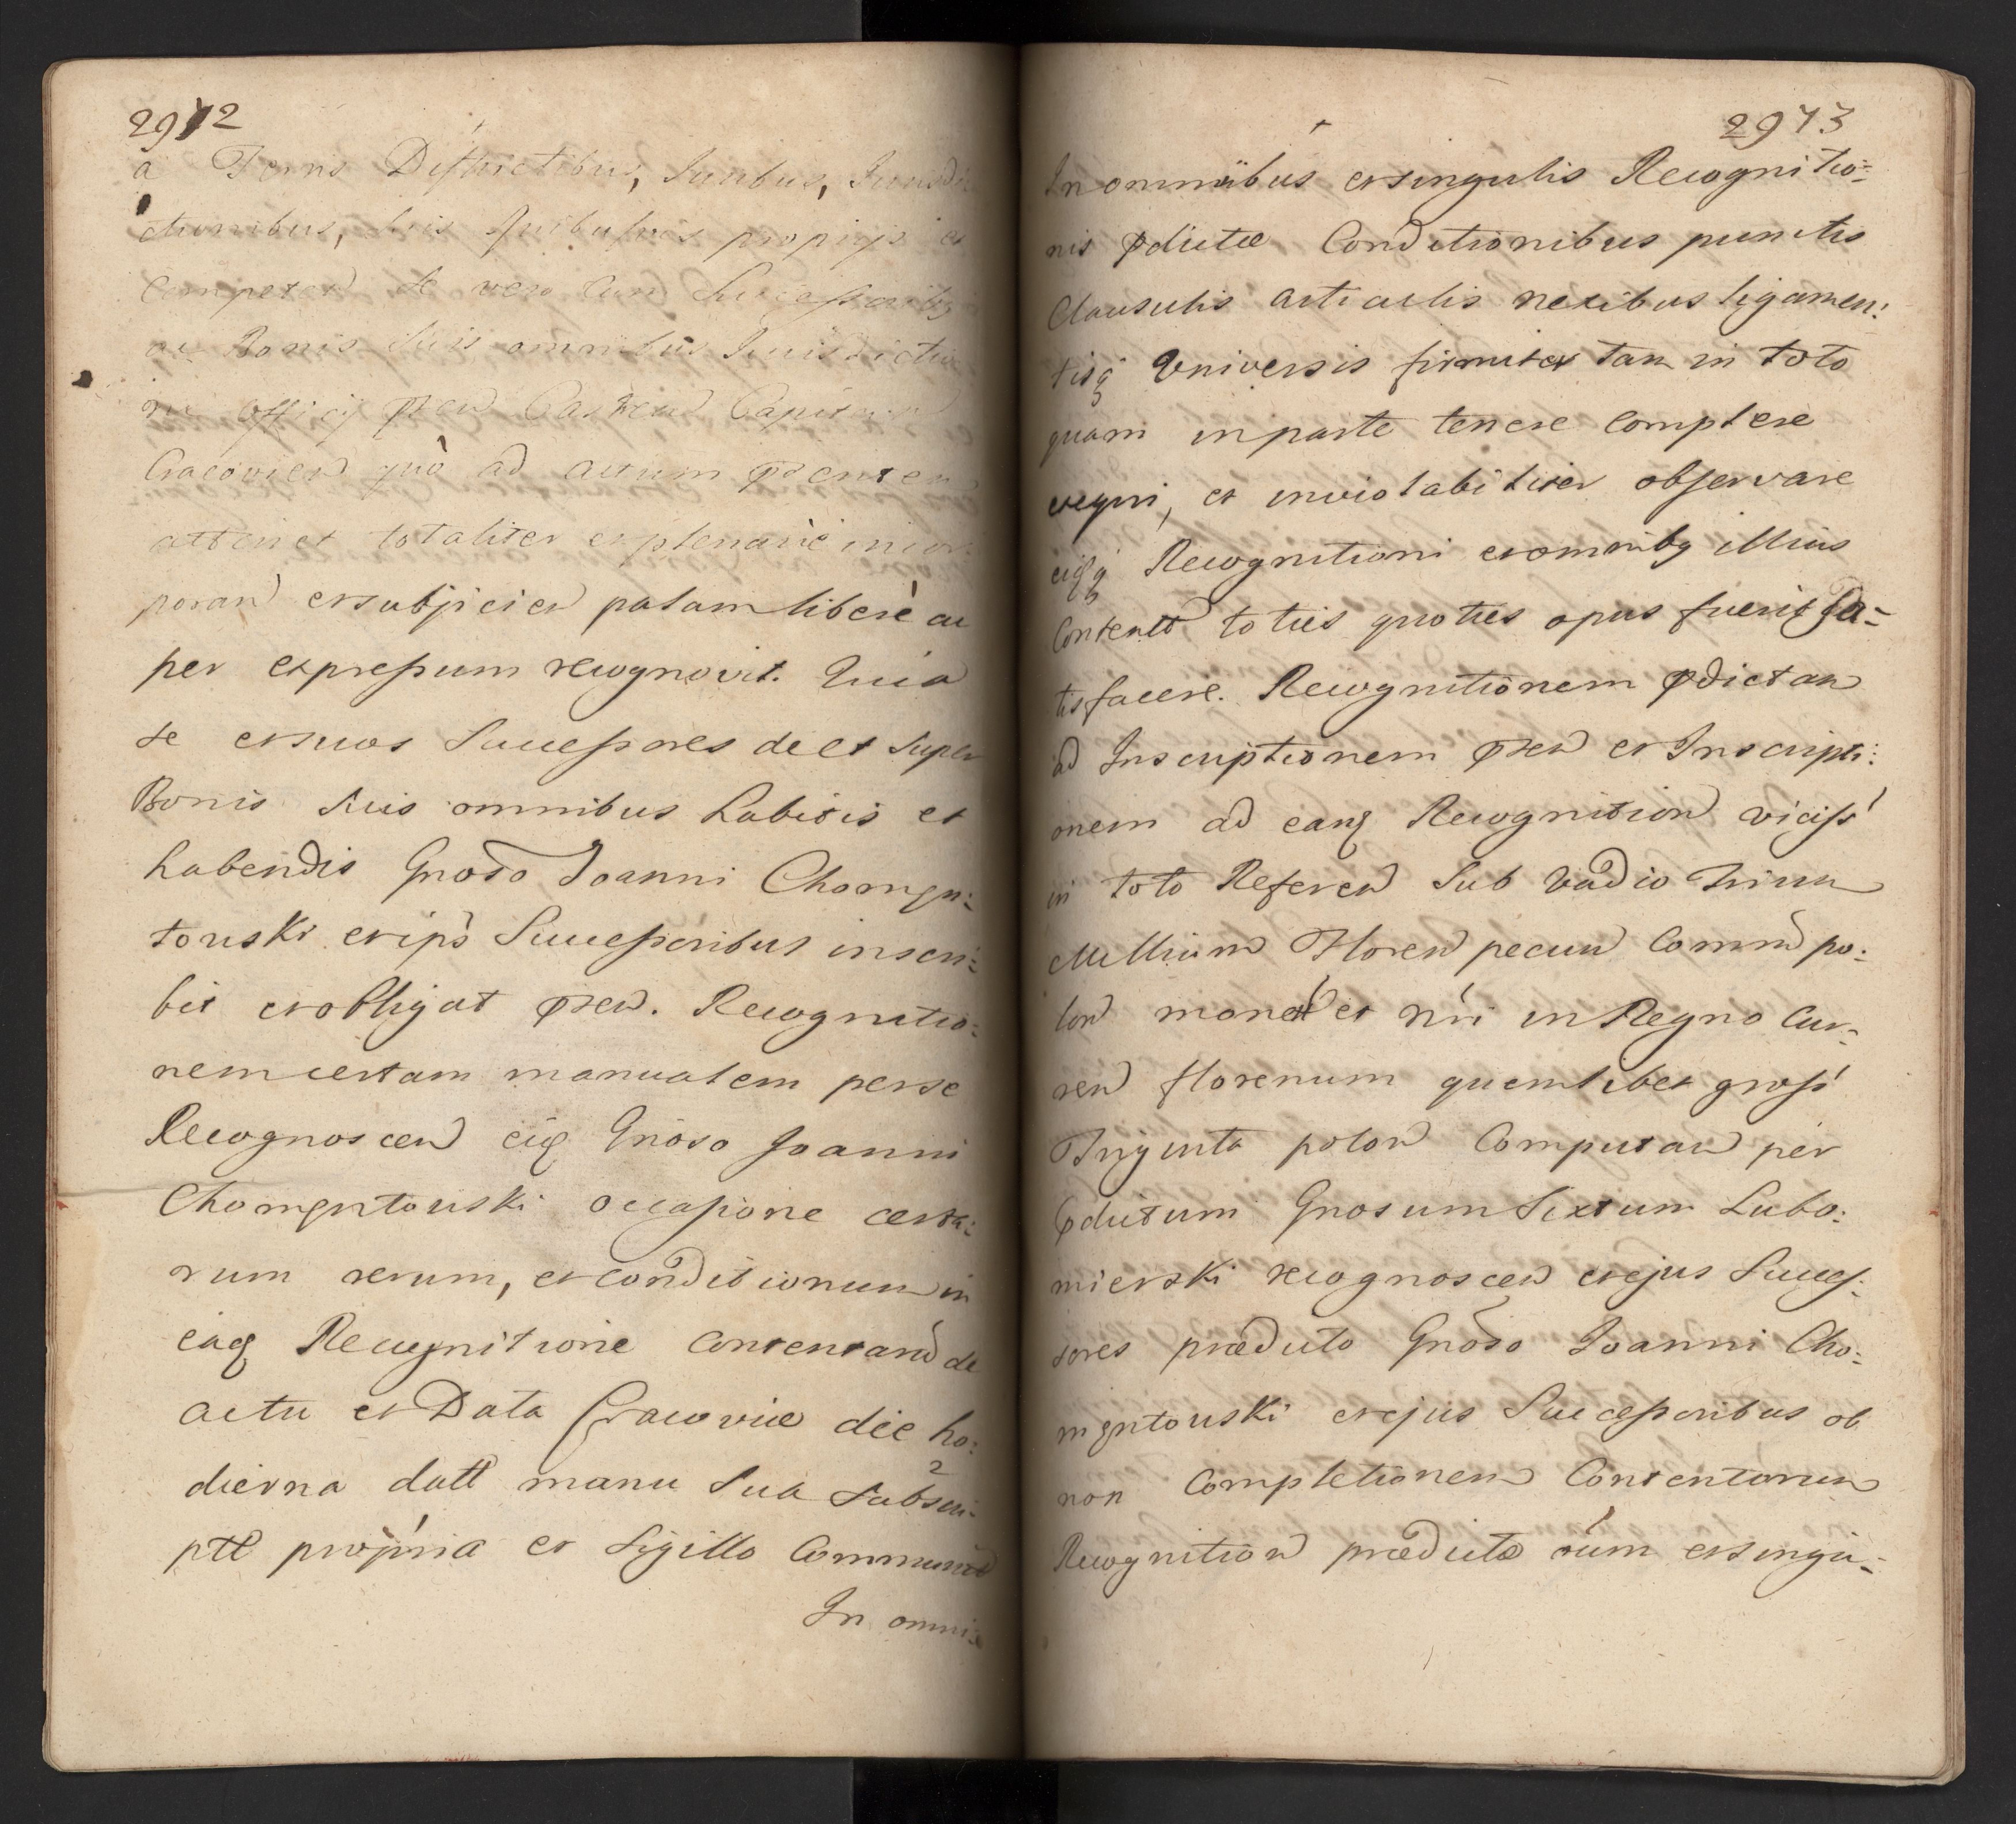 2972
a Terris Districtibus, Juribus, Jurisdi
ctionibus, suis quibusvis propriis et
Competen se vero cum Successoribg
ac Bonis suis omnibus Jurisdictio
ni officij pren Castren Capitan
Cracovien quò ad actum prenten
attinet totaliter et plenariè incor
poran et subjicien palam liberè ac
per expressum recognovit. Quia
se et suos Successores de et super
Bonis suis omnibus habitis et
habendis Gnoso Joanni Chomen:
towski et ips Successoribus inscri:
bit et obligat pren. Recognitio:
nem certam manualem per se
Recognoscen eiq Gnoso Joanni
Chomentowski occasione certa:
rum rerum, et conditionum in
eaq Recognitione Contentarū de
actu et Data Cracoviæ die ho:
dierna datt manu Sua Subscri-
ptt propria et Sigillo Communitt
In omni:
2973
In omnibus et singulis Recognitio:
nis pdictæ Conditionibus punctis
Clausulis articulis nexibus ligamen:
tisq Universis firmiter tam in toto
quam in parte tenere Complere
exequi, et inviolabiliter observare
eiqq Recognitioni et omnibg illius
Contentt toties quoties opus fuerit Sa-
tisfacere. Recognitionem pdictam
ad Inscriptionem pren et Inscripti:
onem ad eanq Recognition viciss
in toto Referen Sub Vadio Trium
Millium Floren pecun Commū po:
lon monetæ et nri in Regno Cur-
ren florenum quemlibet gross
Triginta polon Computan per
pdictum Gnosum Sixtum Lubo:
mierski recognoscen et ejus Succes:
sores prædicto Gnoso Joanni Cho:
mentowski et ejus Successoribus ob
non Completionem Contentorum
Recognition prædictæ oium et singu: